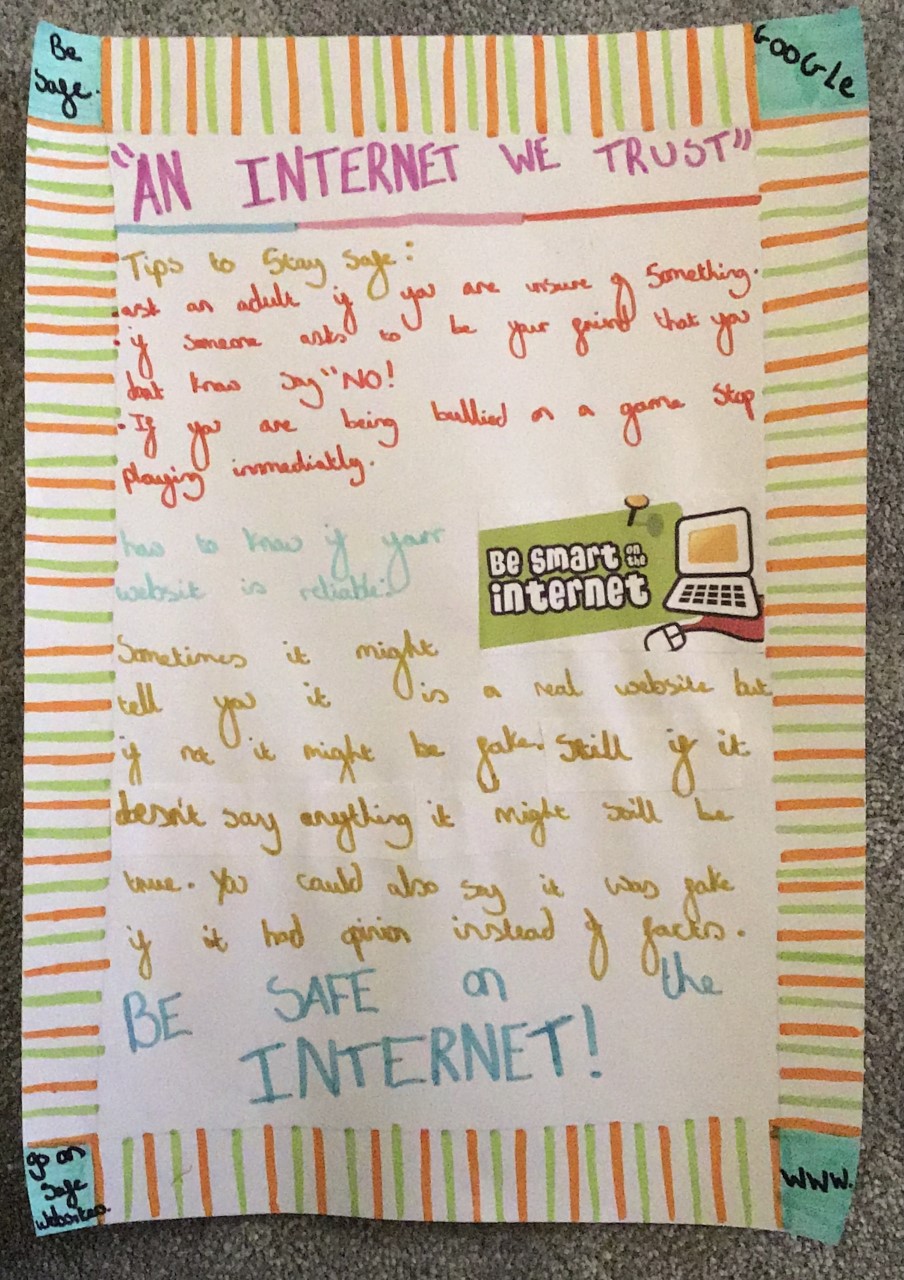 Be
Safe.
GOOGLE
"AN INTERNET WE TRUST"
Tips to Stay Safe:
.ask an adult if you are unsure of Something.
.if someone asks to be your freind that you
dont know say "NO!
.If you are being bullied on a game stop
playing immediatly.
how to know if your
websit is reliable:
Be smart on the
internet
Sometimes it might
tell you it is a real website but
if not it might be fake. Still if it
doesn't say anything it might still be
true. You could also say it was fake
if it had opinion instead of facts.
BE SAFE on the
INTERNET!
go on
safe
websites.
WWW.